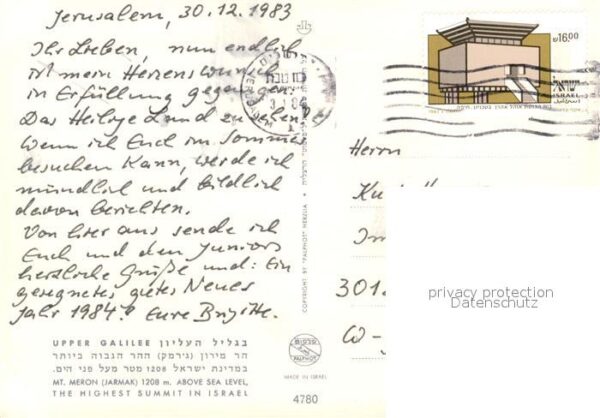 Jerusalem, 30.12.1983
Ihr Lieben, nun endlich
ist mein Herzenswunsch
in Erfüllung gegangen:
Das Heilige Land zu sehen.
Wenn ich Euch im Sommer
besuchen kann, werde ich
mündlich und bildlich
davon berichten.
Von hier aus sende ich
Euch und den Juniors
herzliche Grüße und: Ein
gesegnetes, gutes Neues
Jahr 1984! Eure Brigitte.
UPPER GALILEE בגליל העליון
הר מירון (ג'רמק) ההר הגבוה ביותר
במדינת ישראל 1208 מטר מעל פני הים.
MT. MERON (JARMAK) 1208 m. ABOVE SEA LEVEL,
THE HIGHEST SUMMIT IN ISRAEL
COPYRIGHT BY "PALPHOT" HERZLIA
פלפוט
PALPHOT
MADE IN ISRAEL
4780
16.00
ישראל
ISRAEL
Herrn
301
W-
privacy protection
Datenschutz